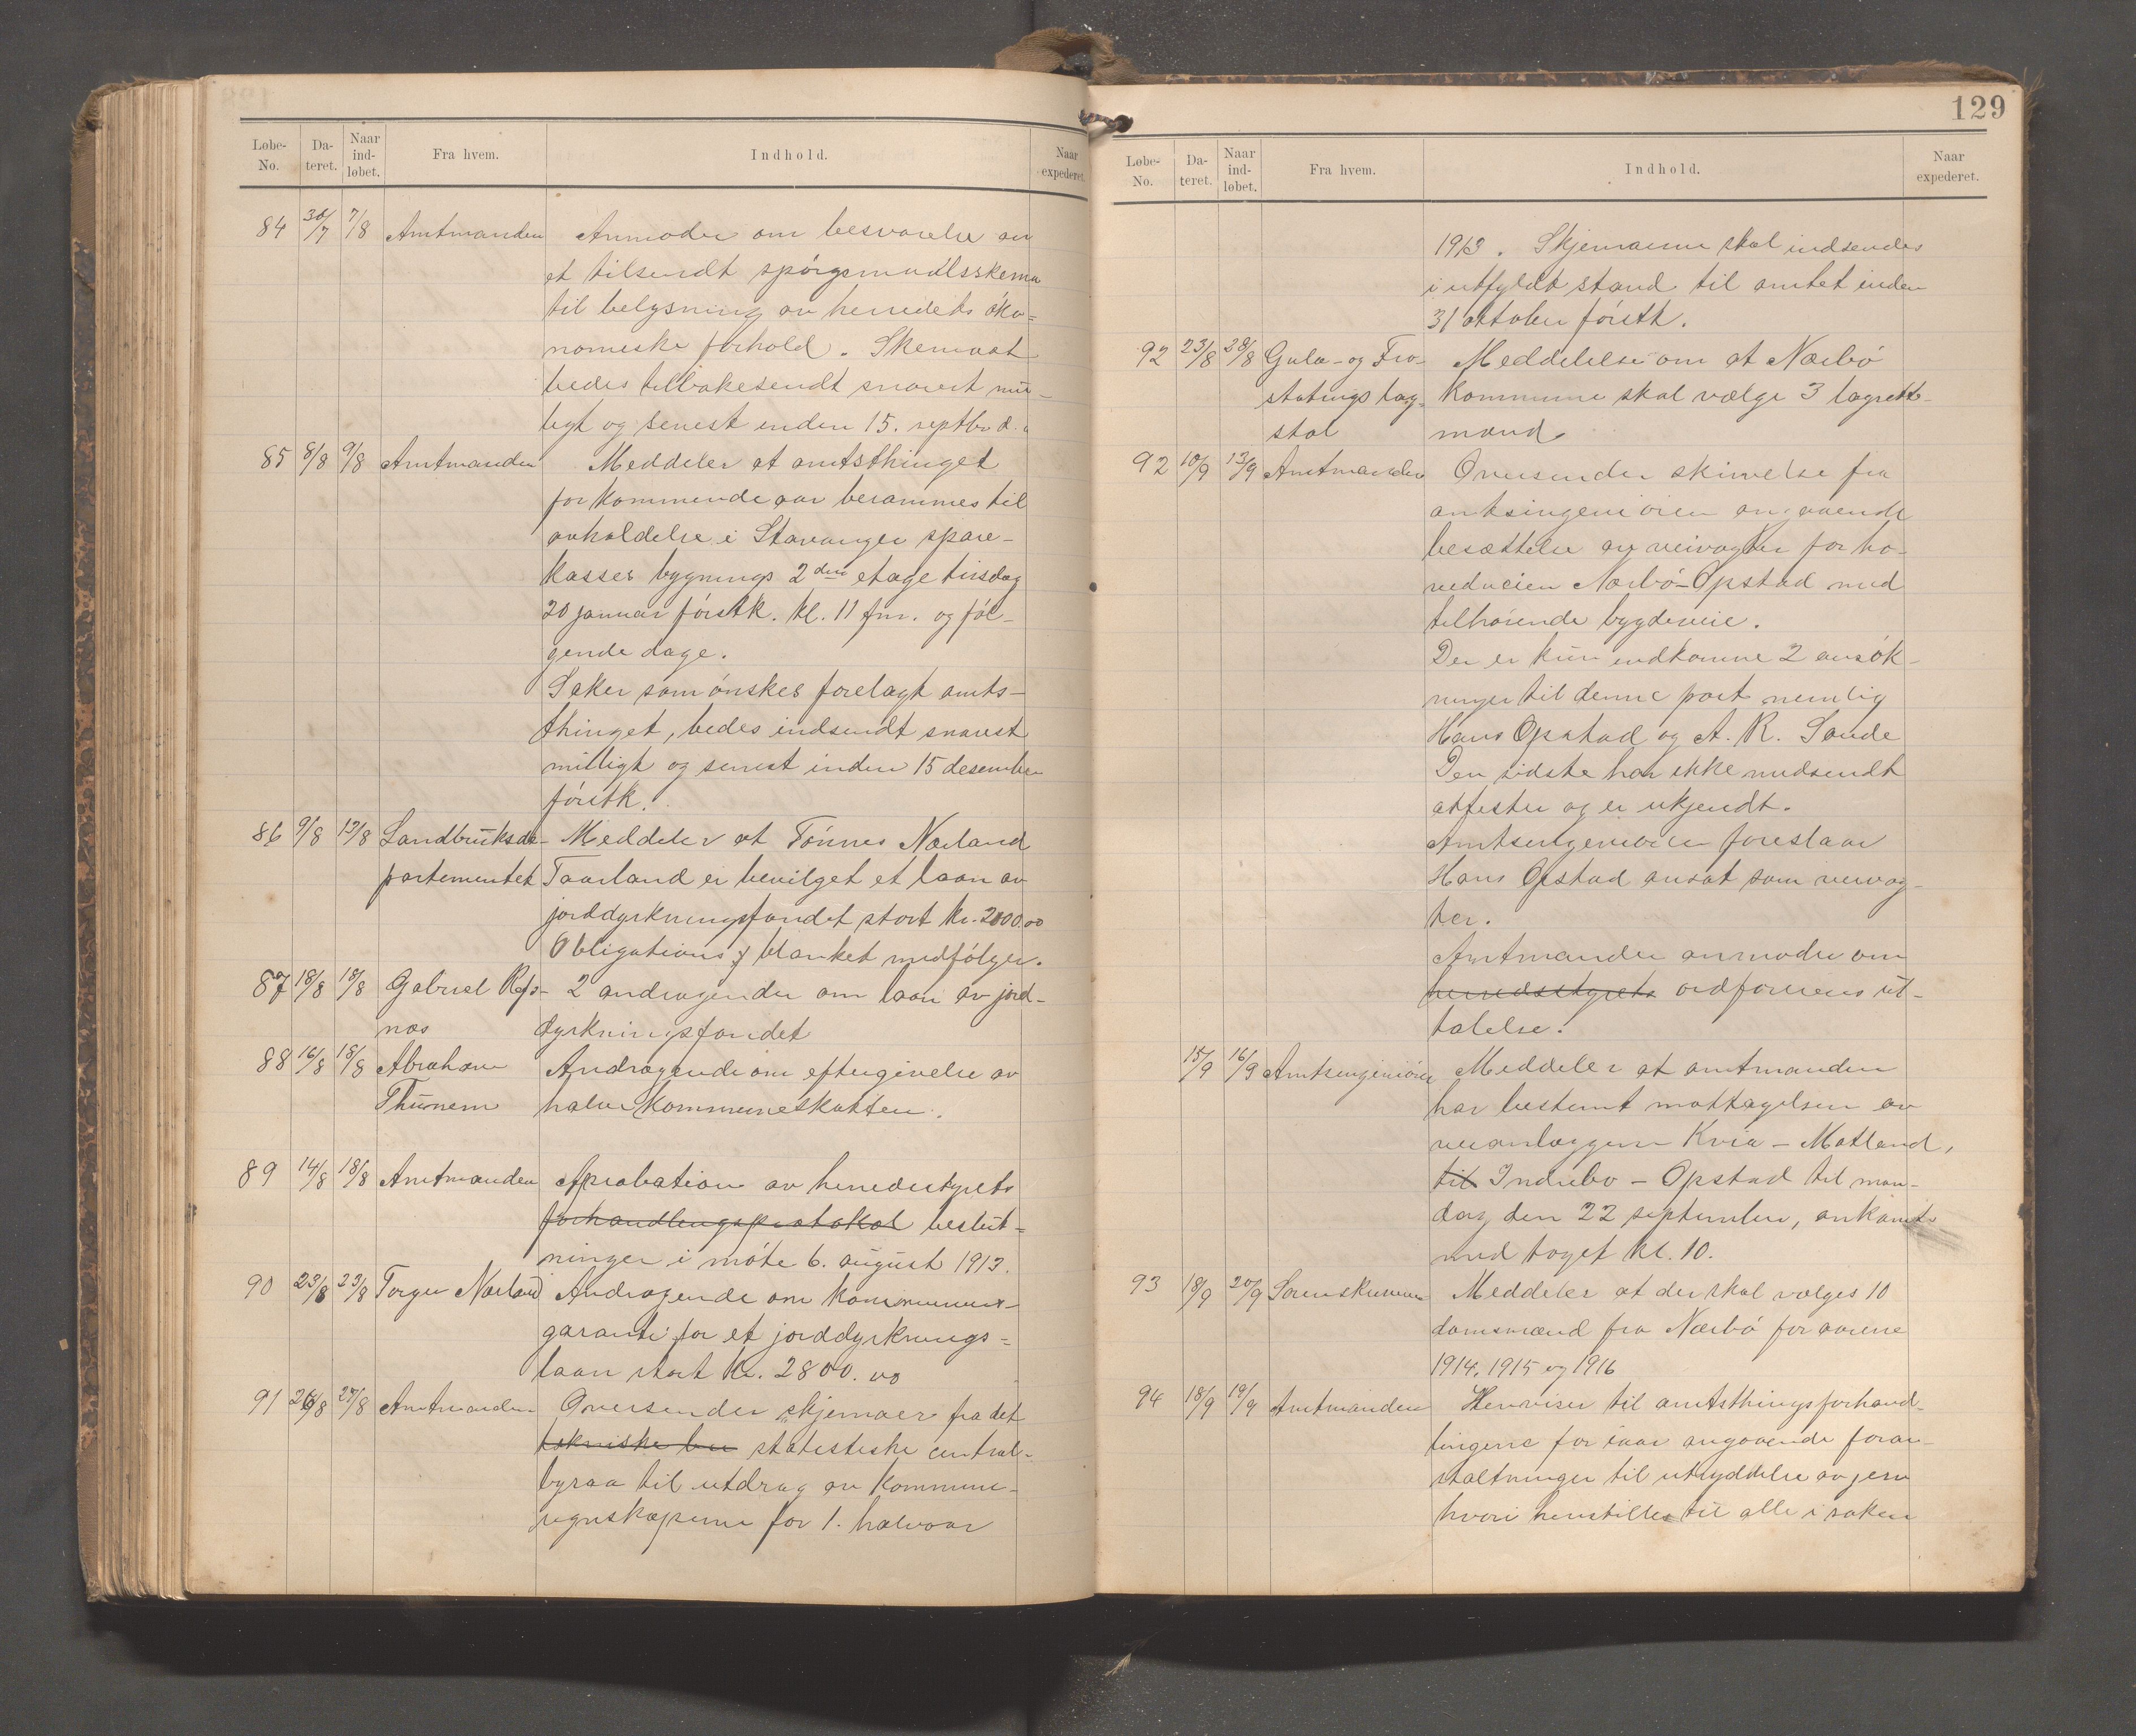 Løbe-No. Da-teret. Naar ind-løbet. Fra hvem. Indhold. Naar expederet.
84 30/7 7/8 Amtmanden Anmoder om besvarelse av
et tilsendt spörgsmaalsskema
til belysning av herredets öko-
nomiske forhold. Skemaat
bedes tilbakesendt snarest mu-
ligt og senest inden 15. septbr d.a
85 8/8 9/8 Amtmanden Meddeler at amtsthinget
for kommende aar berammes til
avholdelse i Stavanger spare-
kasses bygnings 2den etage tirsdag
20 januar förstk. kl. 11 fm. og föl-
gende dage.
Saker som önskes forelagt amts-
thinget, bedes indsendt snarest
muligt og senest inden 15 desember
förstk.
86 9/8 13/8 Landbruksde- Meddeler at Tönnes Nærland
partementet Taarland er bevilget et laan av
jorddyrkningsfondet stort kr. 2000.00
Obligations blanket medfölger.
87 18/8 18/8 Gabriel Refs- 2 andragender om laan av jord-
nes dyrkningsfondet
88 16/8 18/8 Abraham Andragende om eftergivelse av
Thunem halve kommuneskatten.
89 14/8 18/8 Amtmanden Aprobation av herredsstyrets
forhandlingsprotokol beslut-
ninger i möte 6. august 1913.
90 23/8 23/8 Torger Nærland Andragende om kommune-
garanti for et jorddyrknings-
laan stort kr. 2800.00
91 26/8 27/8 Amtmanden Oversender skjemaer fra det
tekniske bu statistiske central-
byraa til utdrag av kommune-
regnskaperne for 1. halvaar
129
Løbe-No. Da-teret. Naar ind-løbet. Fra hvem. Indhold. Naar expederet.
1913. Skjemaene skal indsendes
i utfyldt stand til amtet inden
31 oktober förstk.
92 23/8 28/8 Gula- og Fro- Meddelelse om at Nærbö
statings lag- kommune skal vælge 3 lagrett-
stol mænd
92 10/9 13/9 Amtmanden Oversender skrivelse fra
amtsingeniören angaaende
besættelse av veivogter for ho-
vedveien Nærbö-Opstad med
tilhörende bygdeveie.
Der er kun indkomne 2 ansök-
ninger til denne post nemlig
Hans Opstad og A. R. Sande
Den sidste har ikke medsendt
attester og er ukjendt.
Amtsingeniören foreslaar
Hans Opstad ansat som veivog-
ter.
Amtmanden anmoder om
herredsstyrets ordförerens ut-
talelse.
15/9 16/9 Amtsingeniören Meddeler at amtmanden
har bestemt mottagelsen av
veianlæggene Kvia - Motland,
til Indrebo - Opstad til man-
dag den 22 september, ankomst
med toget kl. 10.
93 18/9 20/9 Sorenskriveren Meddeler at der skal vælges 10
domsmænd fra Nærbö for aarene
1914, 1915 og 1916
94 18/9 19/9 Amtmanden Henviser til amtsthingsforhand-
lingene for iaar angaaende foran-
staltninger til utryddelse av jerv
hvori henstilles til alle i saken